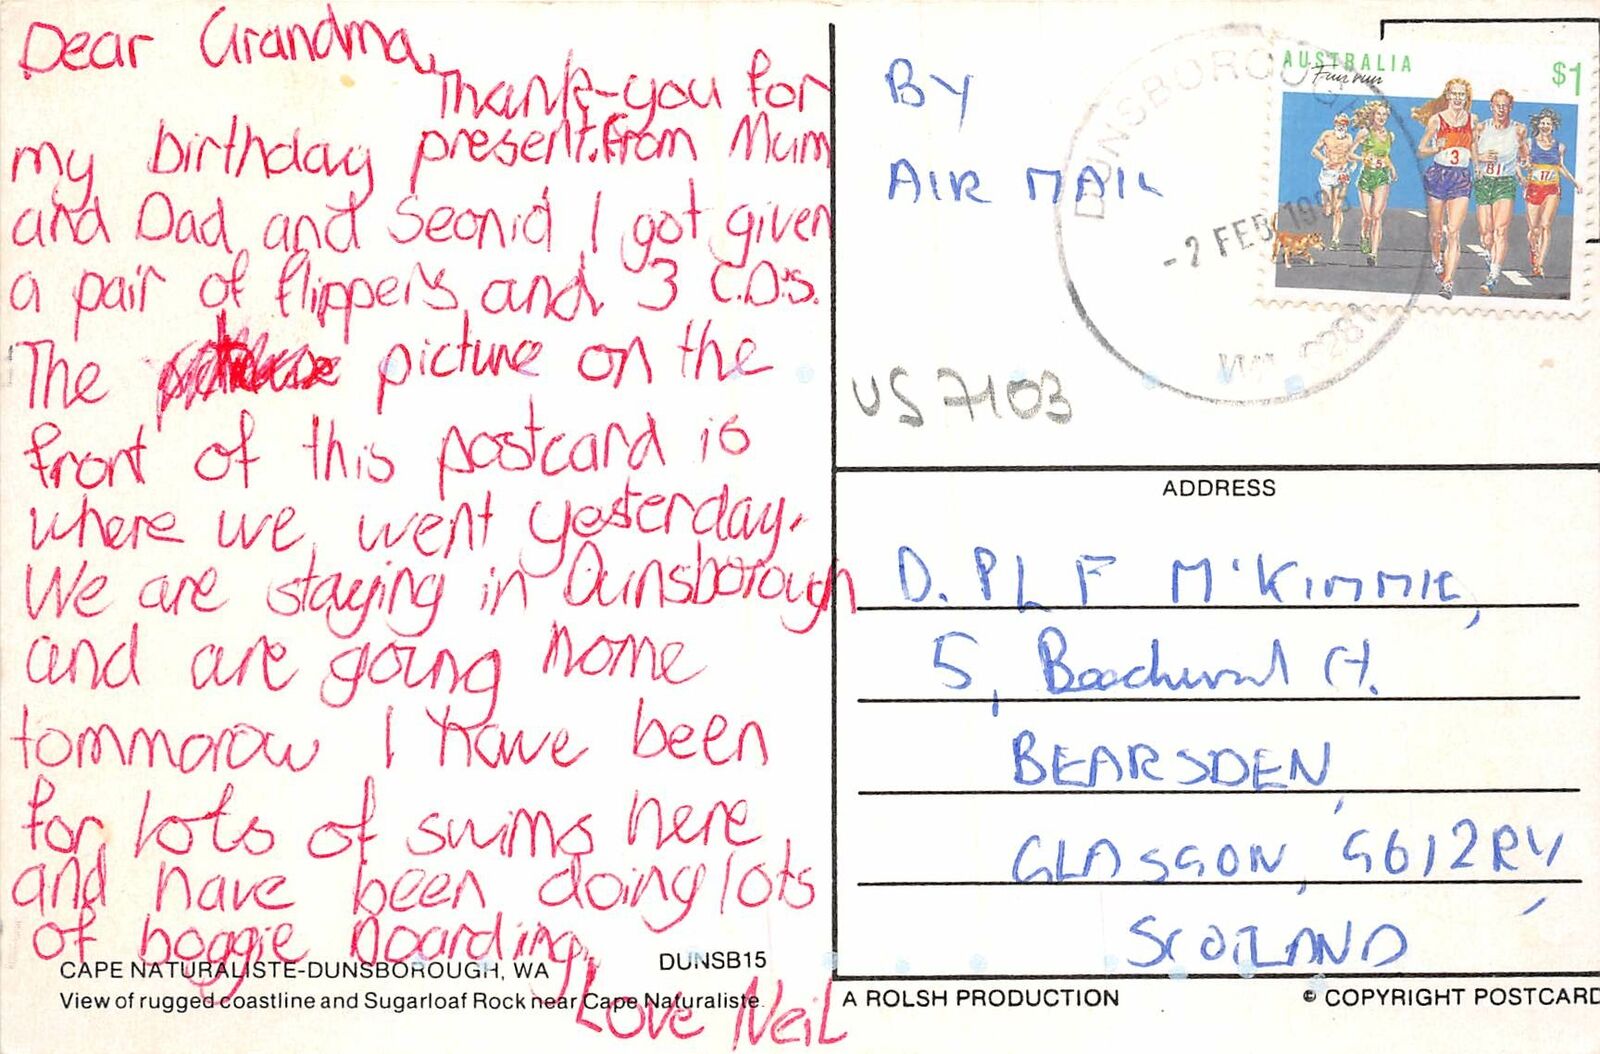 Dear Grandma,
Thank-you for
my birthday present. From Mum
and Dad and Seonid I got given
a pair of flippers and 3 C.D's.
The picture on the
front of this postcard is
where we went yesterday.
We are staying in Dunsborough
and are going home
tommorow I have been
for lots of swims here
and have been doing lots
of boggie boarding.
Love Neil
CAPE NATURALISTE-DUNSBOROUGH, WA
DUNSB15
View of rugged coastline and Sugarloaf Rock near Cape Naturaliste.
BY
AIR MAIL
AUSTRALIA
Fun run
$1
3
81
DUNSBOROUGH
-2 FEB 199
US 7103
ADDRESS
D. P L F M'KIMMIE,
5, Beechwood Ct.
BEARSDEN,
GLASGOW, G612RY,
SCOTLAND
A ROLSH PRODUCTION
© COPYRIGHT POSTCARD